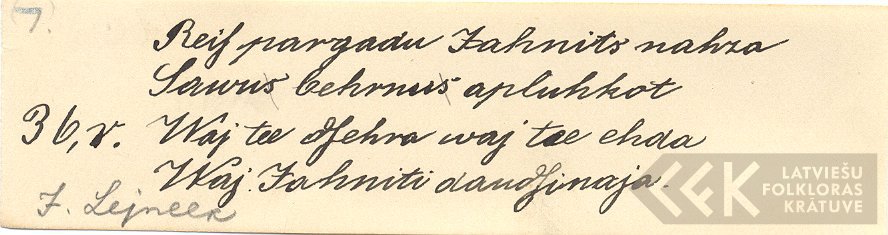 7.
Reiſ pargadu Jahnits nahza
Sawus behrnus apluhkot
36,v. Waj tee dſehra waj tee ehda
Waj Jahniti daudſinaja.
J. Lejneek
LATVIEŠU
FOLKLORAS
KRĀTUVE